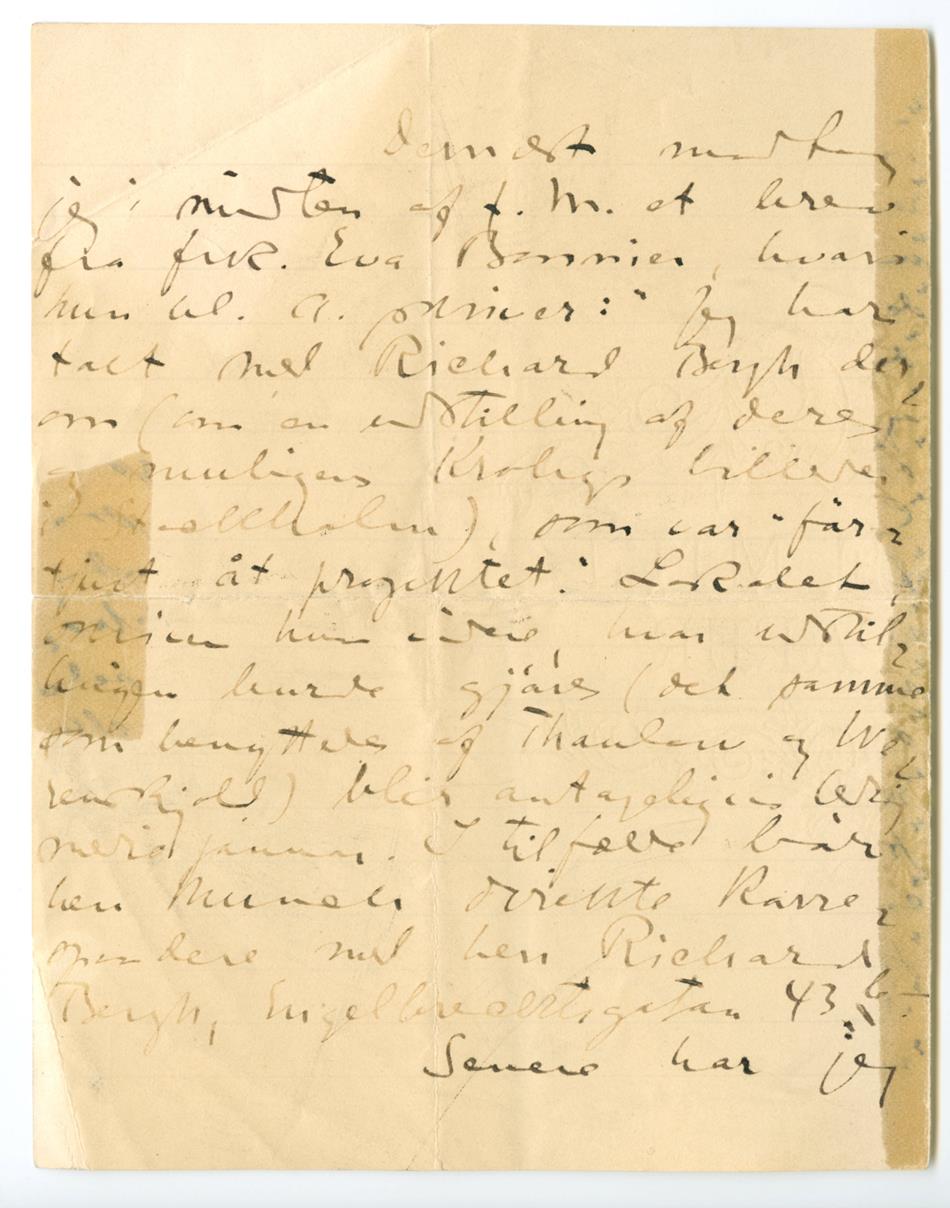 Dernæst modtog
jeg i midten af f. M. et brev
fra frk. Eva Bonnier, hvori
hun bl. a. skriver: "Jeg har
talt med Richard Bergh der,
om (om en udstilling af deres
og muligens Krohgs billeder
i Stockholm), som var "för,
tjust åt projektet." Lokalet,
skriver hun videre, hvor udstil,
lingen burde gjøres (det samme
som benyttedes af Thaulow og We,
renskjold) blir antageligvis ledig
med januar. I tilfælde bør
herr Munch direkte korre,
spondere med herr Richard
Bergh, Engelbrechtsgatan 43.b"
Senere har jeg